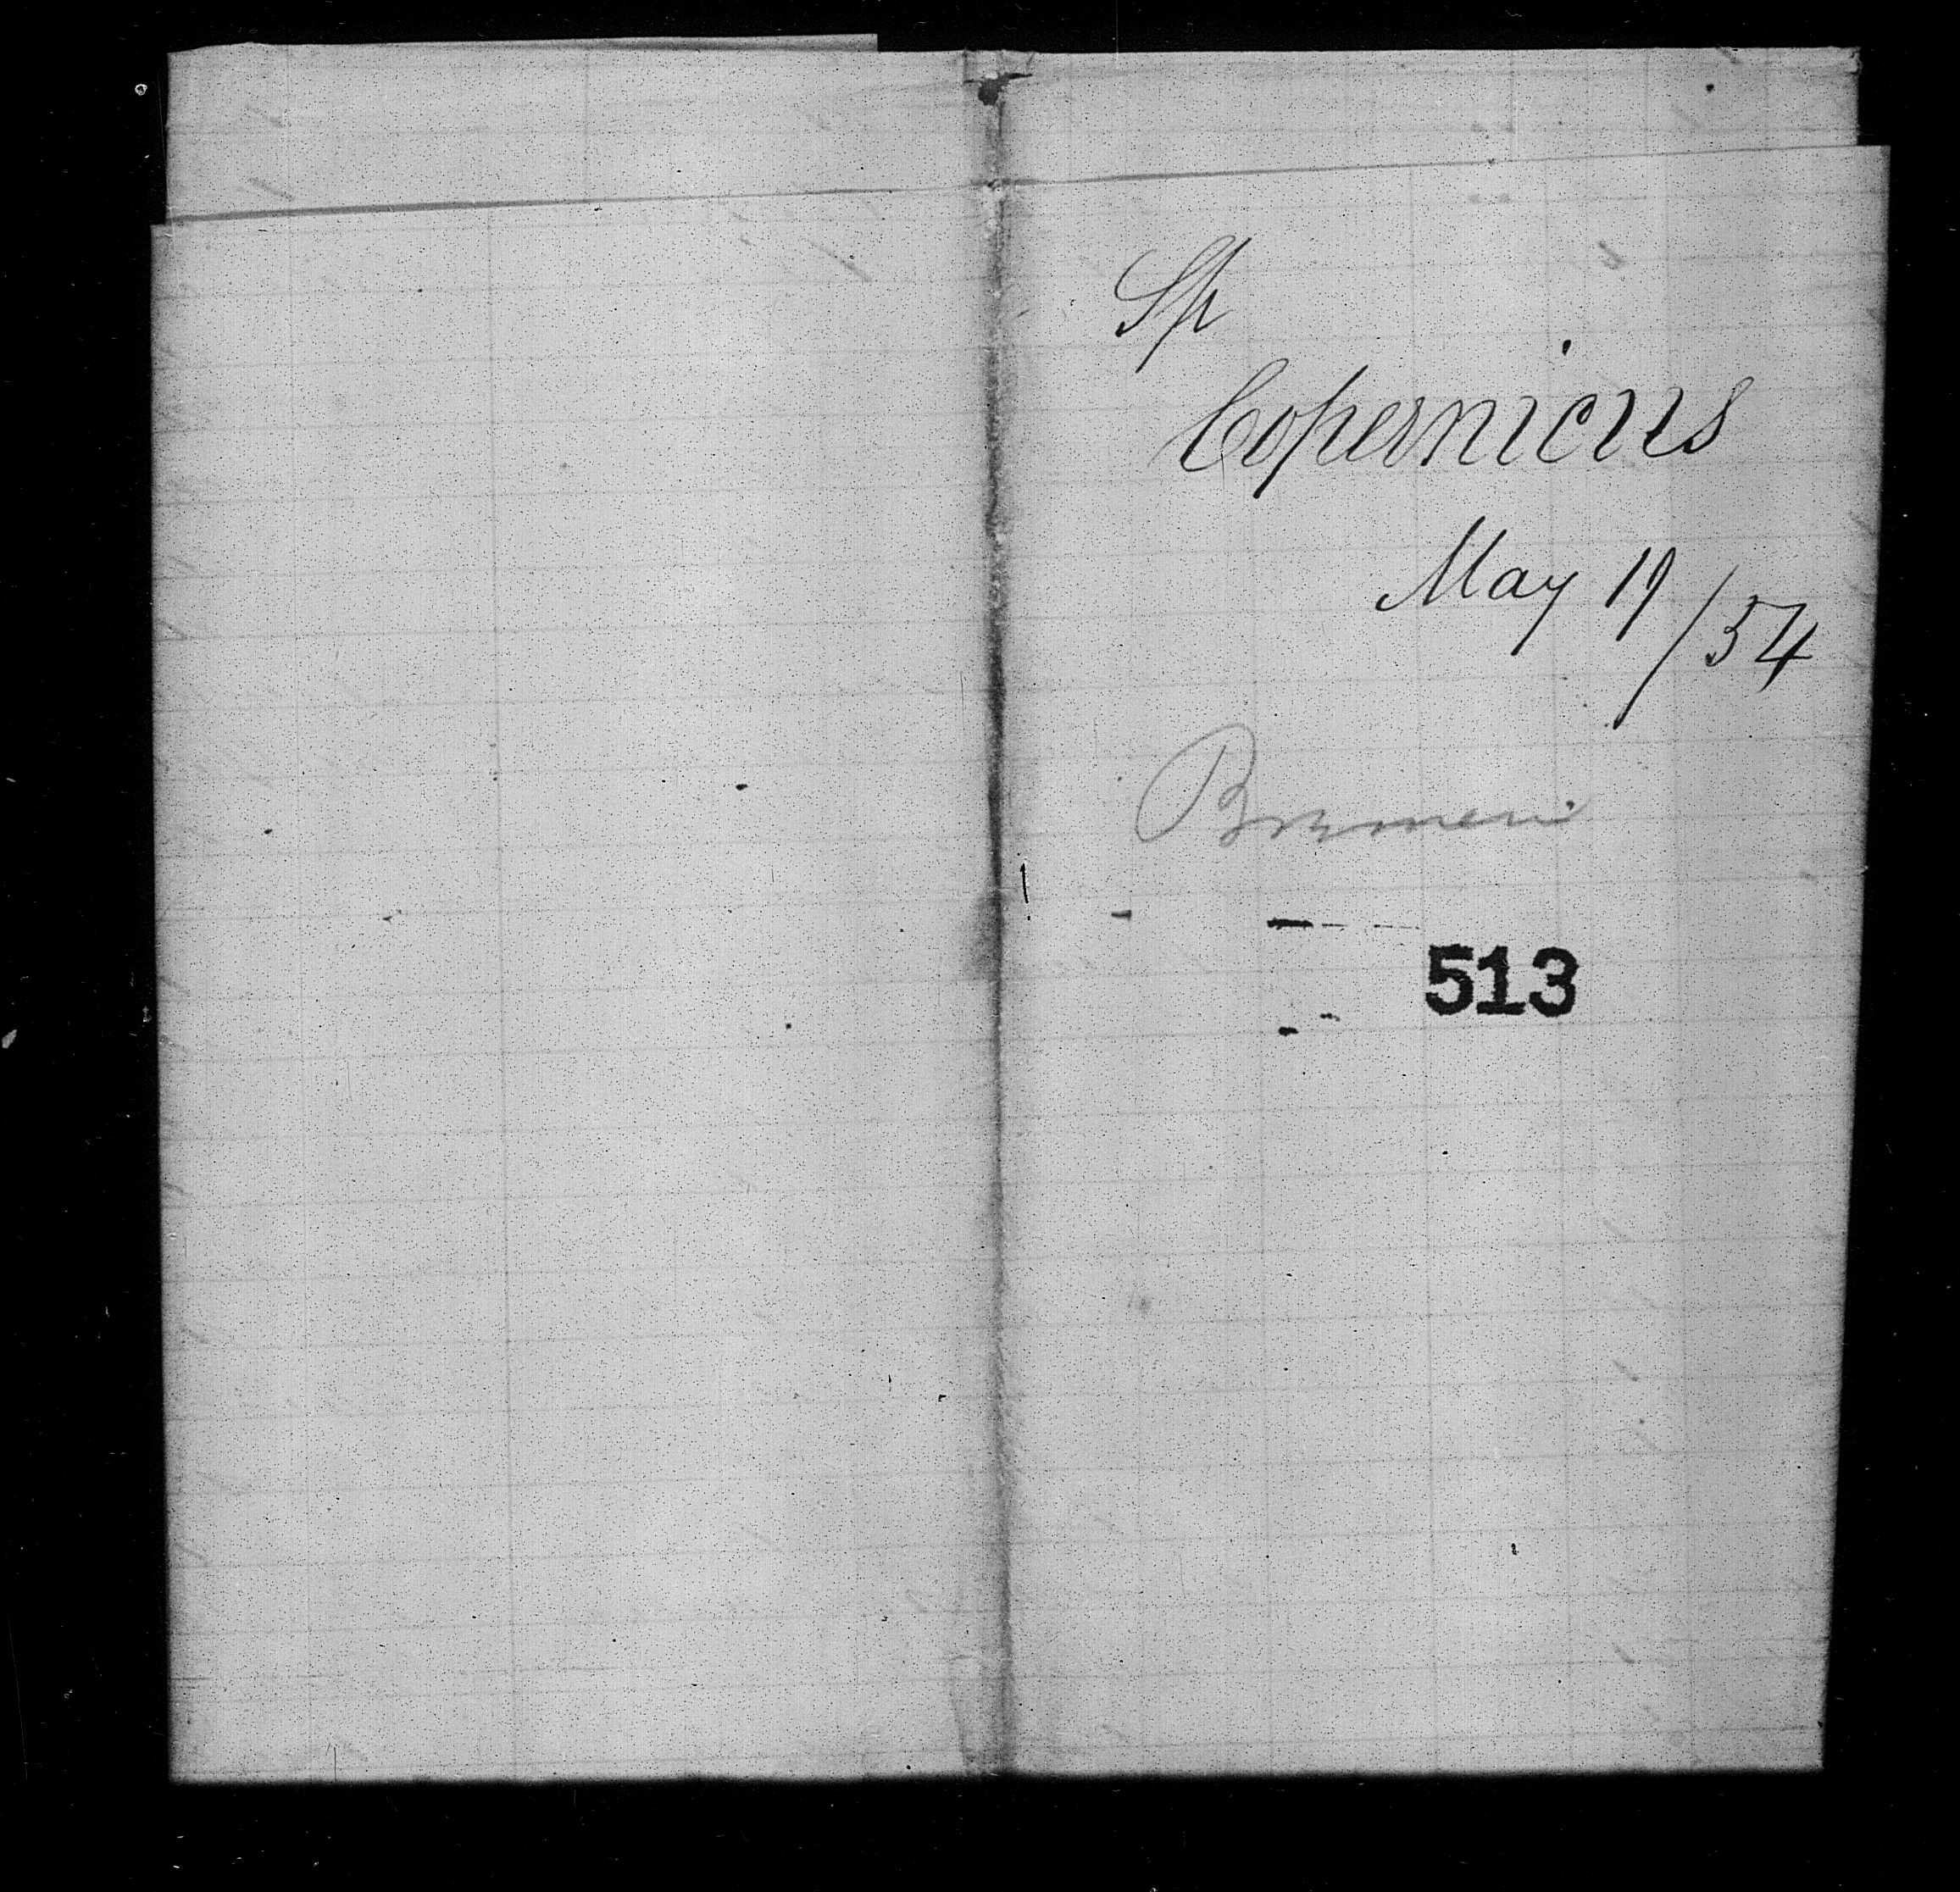 Sh
Copernicus
May 19/54
Bremen
513